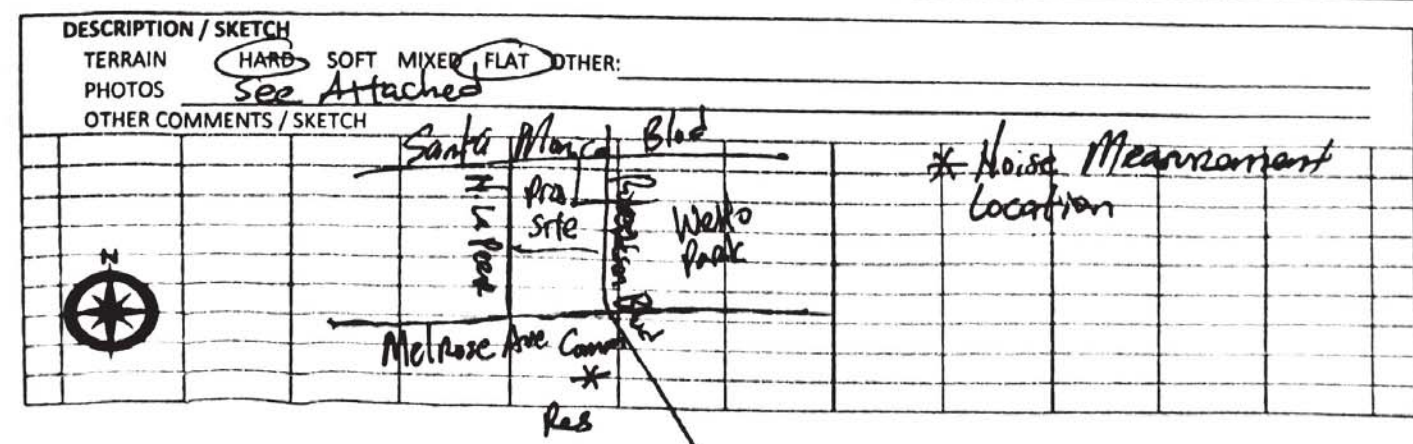 DESCRIPTION / SKETCH
TERRAIN HARD SOFT MIXED FLAT OTHER:
PHOTOS See Attached
OTHER COMMENTS / SKETCH
Santa Monica Blvd
* Noise Measurement
Location
N. La Peer
Pro.
Site
Robertson Blvd
WeHo
Park
N
Melrose Ave Comm
*
Res